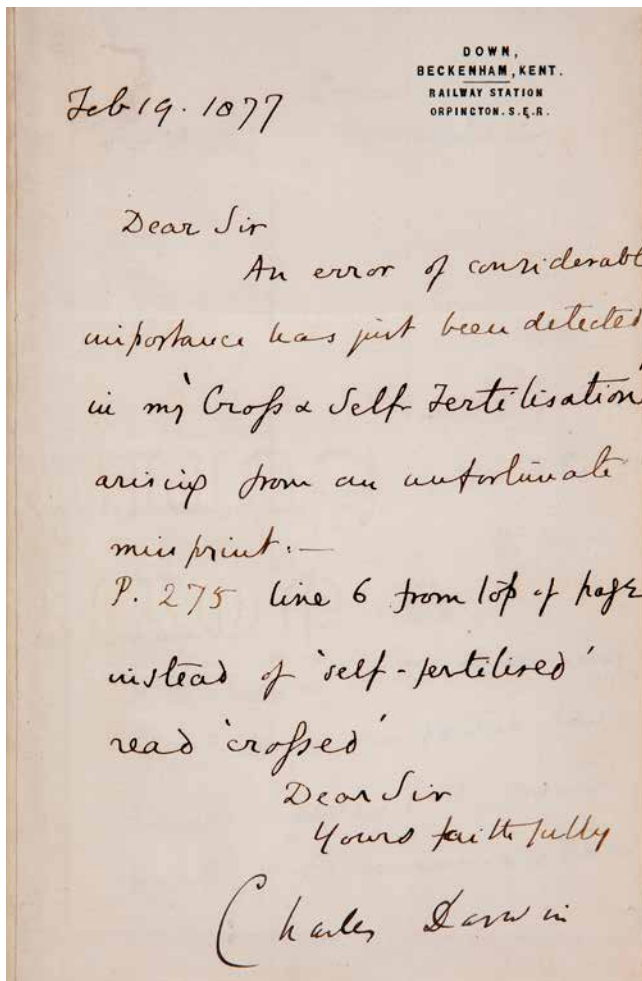 DOWN,
BECKENHAM, KENT.
RAILWAY STATION
ORPINGTON. S.E.R.
Feb 19. 1877
Dear Sir
An error of considerable
importance has just been detected
in my 'Cross & Self Fertilisation'
arising from an unfortunate
misprint:—
P. 275 line 6 from top of page
instead of 'self-fertilised'
read 'crossed'
Dear Sir
Yours faithfully
Charles Darwin